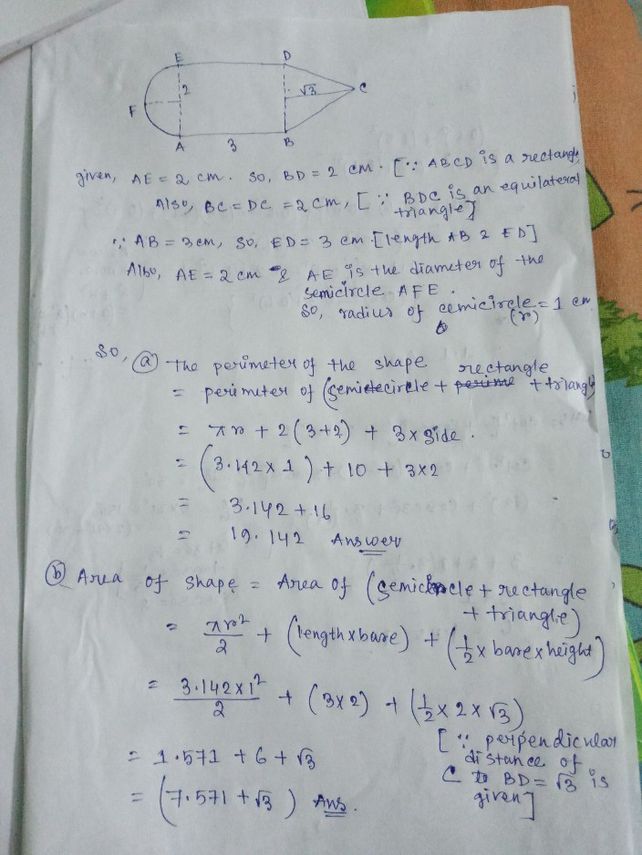 E D
2 √3 C
F
A 3 B
given, AE = 2 cm. so, BD = 2 cm. [∵ ABCD is a rectangle
Also, BC = DC = 2 cm, [∵ BDC is an equilateral
triangle]
∵ AB = 3 cm, so, ED = 3 cm [length AB 2 ED]
Also, AE = 2 cm & AE is the diameter of the
semicircle AFE.
so, radius of cemicircle = 1 cm
(r)
So, (a) The perimeter of the shape
= perimeter of (semicircle + rectangle + triangle
= πr + 2(3+2) + 3 x side.
= (3.142 x 1) + 10 + 3x2
= 3.142 + 16
= 19.142 Answer
(b) Area of shape = Area of (semicircle + rectangle
+ triangle)
= πr²/2 + (length x base) + (1/2 x base x height)
= 3.142 x 1²/2 + (3x2) + (1/2 x 2 x √3)
= 1.571 + 6 + √3 [∵ perpendicular
distance of
C to BD = √3 is
given]
= (7.571 + √3) Ans.